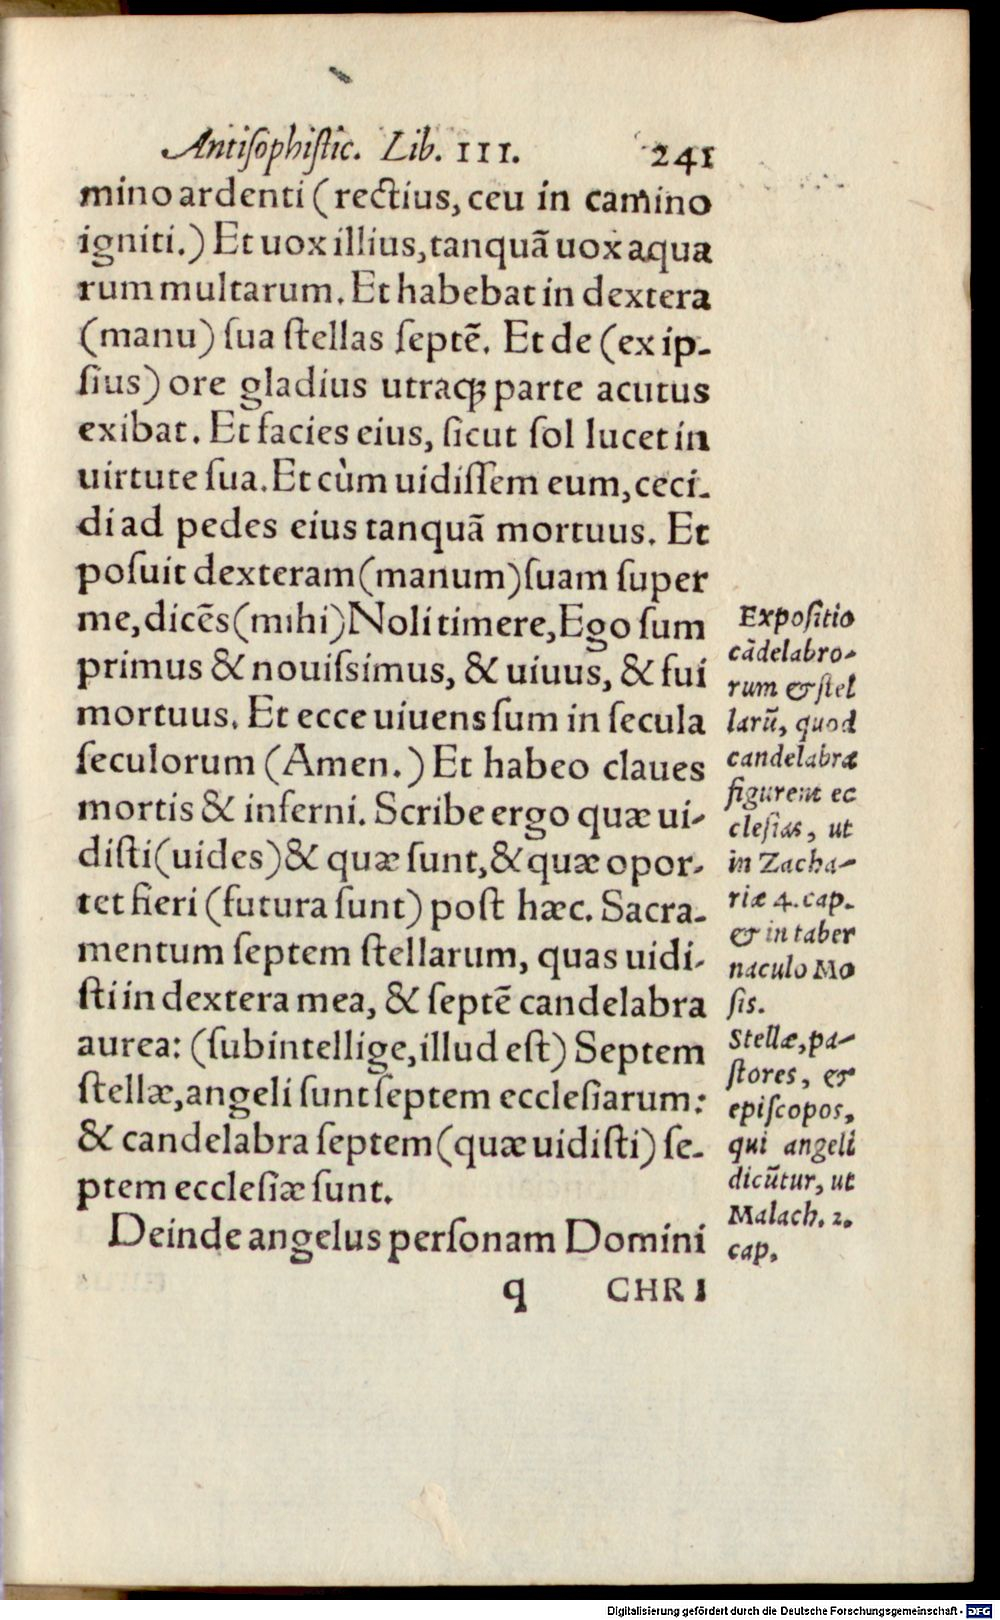 Antiſophiſtic. Lib. III. 241
mino ardenti ( rectius, ceu in camino
igniti.) Et uox illius, tanquã uox aqua
rum multarum. Et habebat in dextera
(manu) ſua ſtellas ſeptẽ. Et de (ex ip-
ſius) ore gladius utraqꝫ parte acutus
exibat. Et facies eius, ſicut ſol lucet in
uirtute ſua. Et cùm uidiſſem eum, ceci-
di ad pedes eius tanquã mortuus. Et
poſuit dexteram (manum) ſuam ſuper
me, dicẽs (mihi) Noli timere, Ego ſum
primus & nouiſsimus, & uiuus, & fui
mortuus. Et ecce uiuens ſum in ſecula
ſeculorum (Amen.) Et habeo claues
mortis & inferni. Scribe ergo quæ ui-
diſti (uides) & quæ ſunt, & quæ opor-
tet fieri (futura ſunt) poſt hæc. Sacra-
mentum ſeptem ſtellarum, quas uidi-
ſti in dextera mea, & ſeptẽ candelabra
aurea: (ſubintellige, illud eſt) Septem
ſtellæ, angeli ſunt ſeptem eccleſiarum:
& candelabra ſeptem (quæ uidiſti) ſe-
ptem eccleſiæ ſunt.
Deinde angelus perſonam Domini
q CHRI
Expoſitio
cãdelabro-
rum & ſtel
larũ, quod
candelabra
figurent ec
cleſias, ut
in Zacha-
riæ 4. cap.
& in taber
naculo Mo
ſis.
Stellæ, pa-
ſtores, &
epiſcopos,
qui angeli
dicũtur, ut
Malach. 2.
cap.
Digitalisierung gefördert durch die Deutsche Forschungsgemeinschaft - DFG